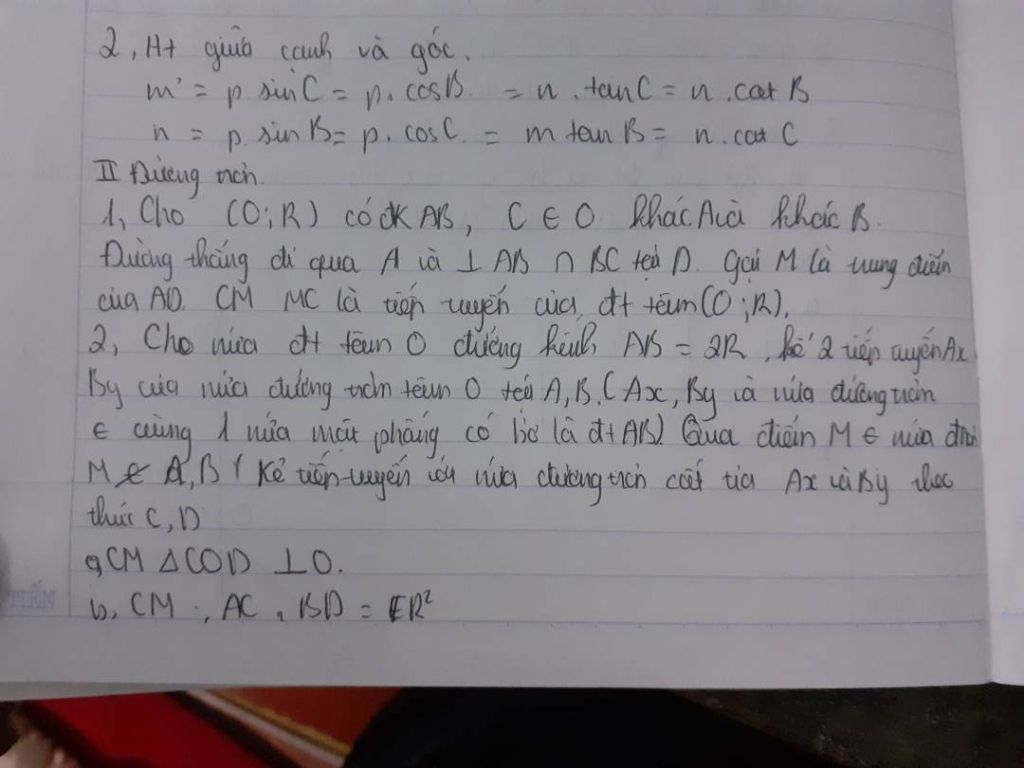 2, Ht giữa cạnh và góc.
m = p. sin C = p. cos B. = n. tan C = n. cot B
n = p. sin B = p. cos C. = m tan B = n. cot C
II Đường tròn.
1, Cho (O; R) có đk AB, C ∈ O khác A và khác B.
Đường thẳng đi qua A và ⊥ AB ∩ BC tại D. Gọi M là trung điểm
của AD. CM MC là tiếp tuyến của đt tâm (O; R).
2, Cho nửa đt tâm O đường kính AB = 2R, kẻ 2 tiếp tuyến Ax
By của nửa đường tròn tâm O tại A, B. (Ax, By và nửa đường tròn
∈ cùng 1 nửa mặt phẳng có bờ là đt AB) Qua điểm M ∈ nửa
M A, B Kẻ tiếp tuyến với nửa đường tròn cắt tia Ax và By theo
thức C, D
a, CM △COD ⊥ O.
b, CM : AC . BD = R²
TIẾN